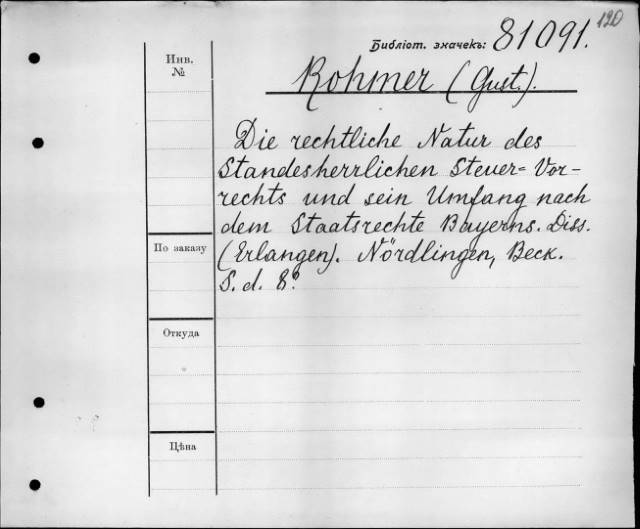 120
Библіот. значекъ: 81091.
Инв.
№
Rohmer (Gust.).
Die rechtliche Natur des
Standesherrlichen Steuer=Vor-
rechts und sein Umfang nach
dem Staatsrechte Bayerns. Diss.
По заказу
(Erlangen). Nördlingen, Beck.
S. d. 8º.
Откуда
Цѣна